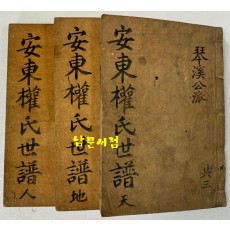 安東權氏世譜 人
安東權氏世譜 地
安東權氏世譜 天
琴溪公派
共三
남문서점